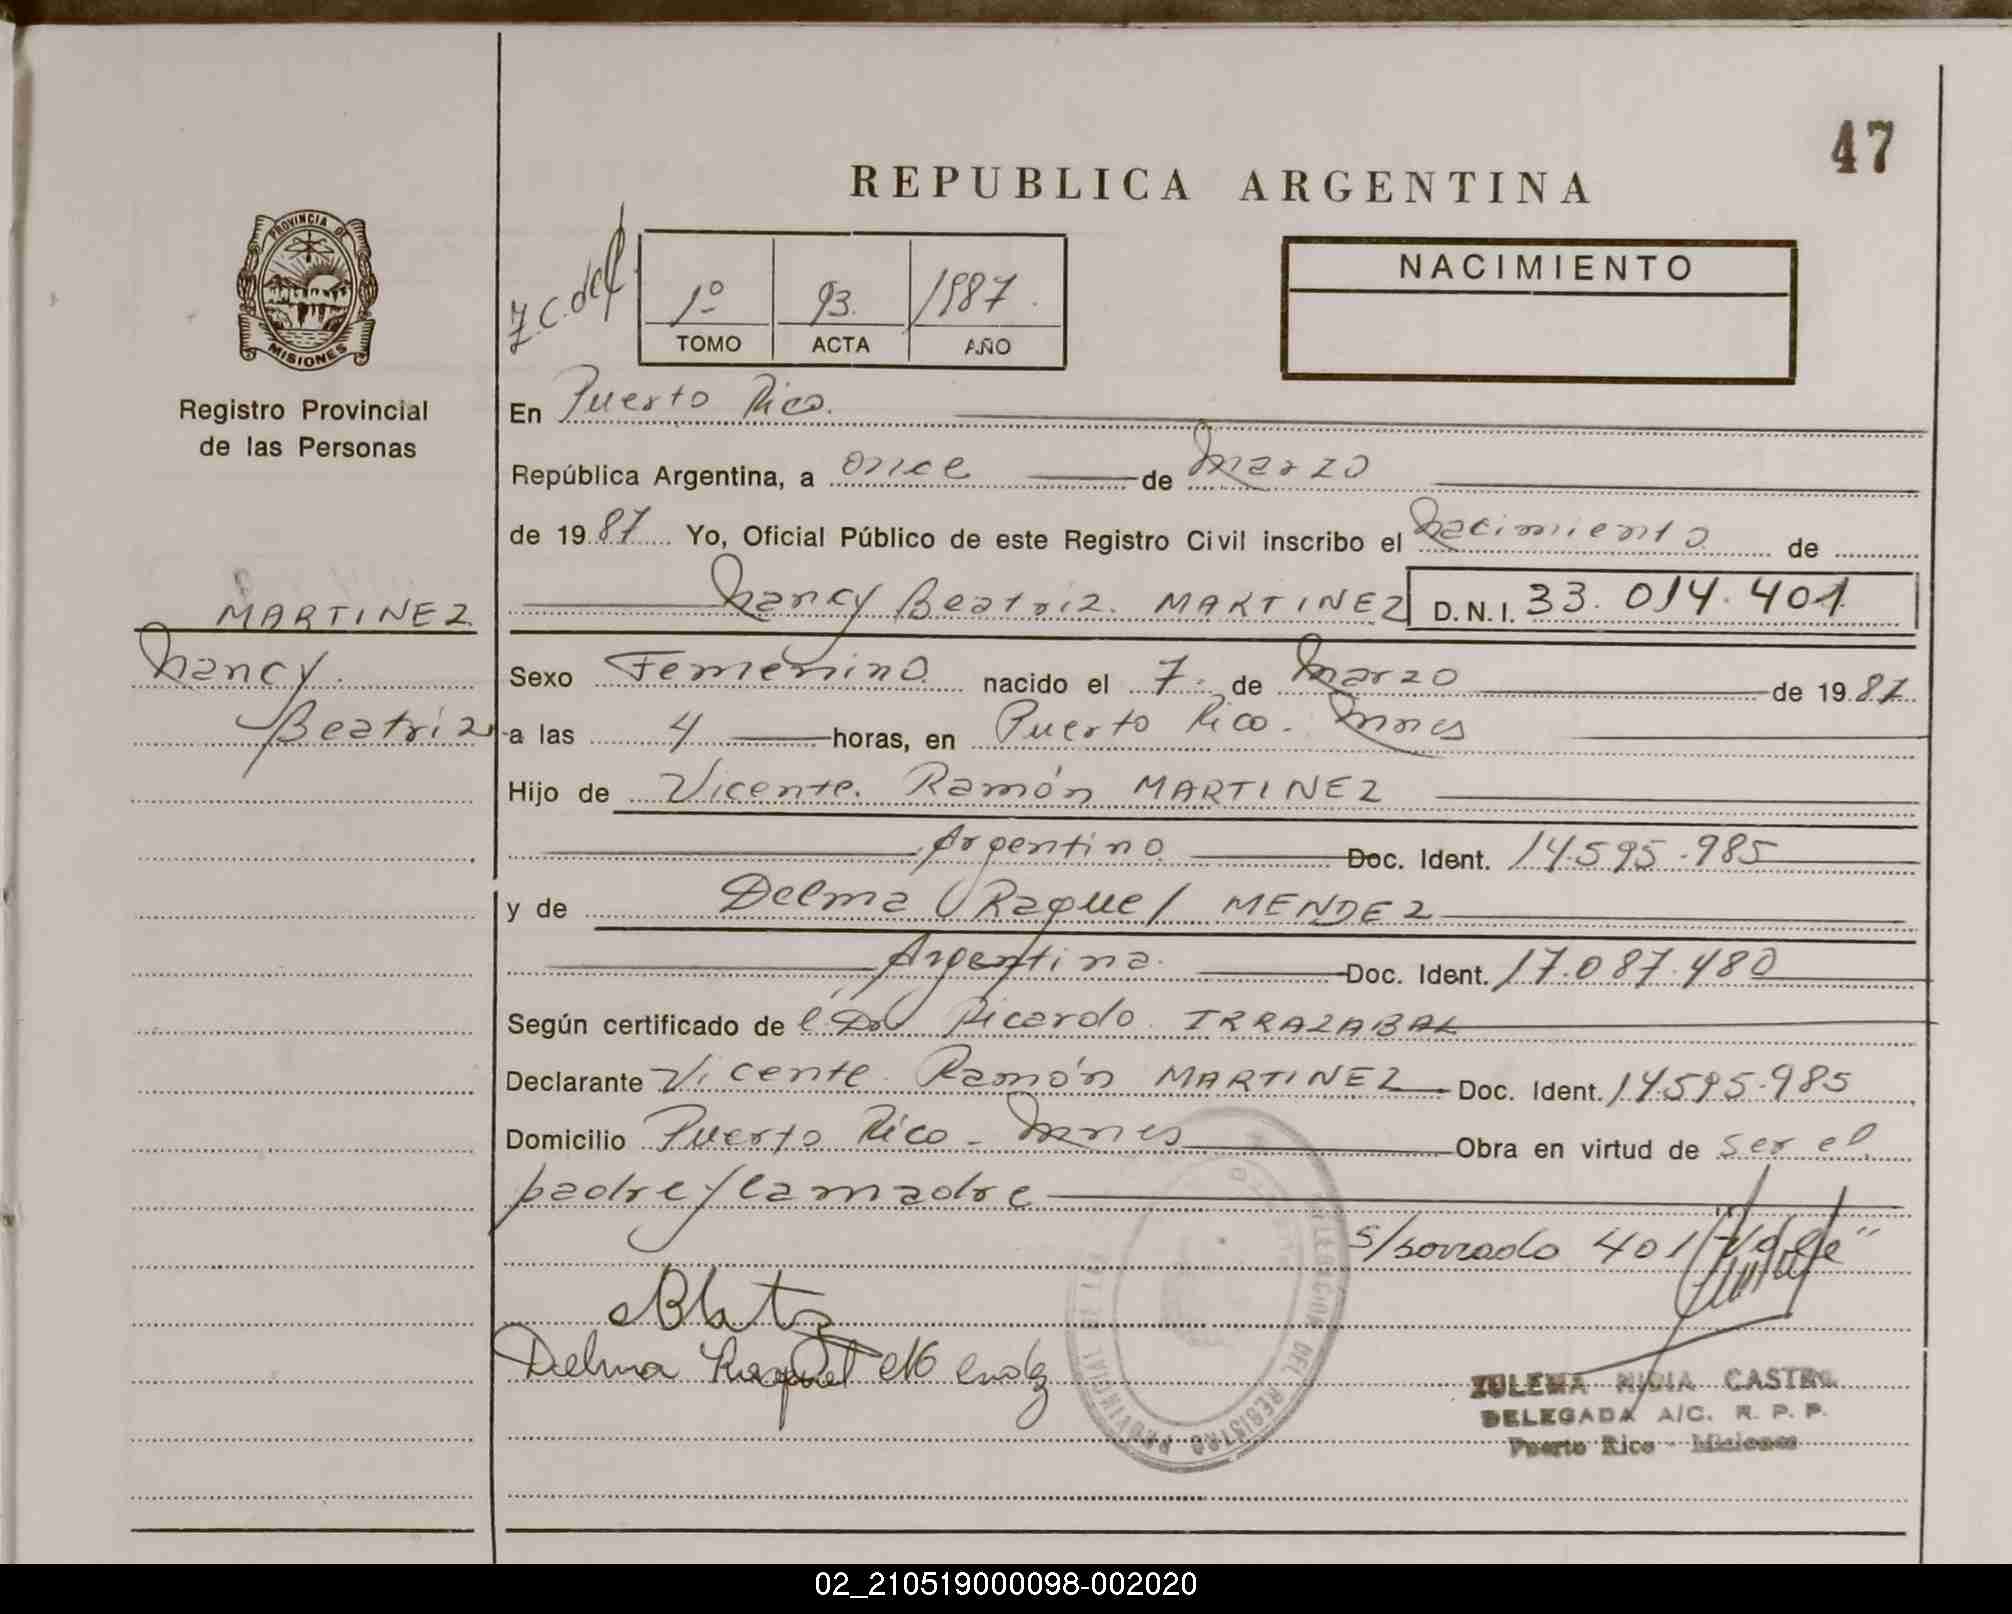 47
REPUBLICA ARGENTINA
PROVINCIA DE
MISIONES
Registro Provincial
de las Personas
1º 93. 1987.
TOMO ACTA AÑO
NACIMIENTO
En Puerto Rico.
República Argentina, a once de Marzo
de 1987 Yo, Oficial Público de este Registro Civil inscribo el Nacimiento de
Nancy Beatriz. MARTINEZ D.N.I. 33.014.401
MARTINEZ
Nancy.
Beatriz
Sexo Femenino. nacido el 7. de Marzo de 1987
a las 4 horas, en Puerto Rico. Mnes
Hijo de Vicente. Ramón MARTINEZ
Argentino Doc. Ident. 14.595.985
y de Delma Raquel MENDEZ
Argentina. Doc. Ident. 17.087.480
Según certificado de l Dr Ricardo IRRAZABAL
Declarante Vicente Ramón MARTINEZ Doc. Ident. 14.595.985
Domicilio Puerto Rico - Mnes Obra en virtud de ser el
padre y la madre
s/borrado 401 "Vale"
Delma Raquel Mendez
DELEGACION DEL REGISTRO PROVINCIAL
ZULEMA NIDIA CASTRO
DELEGADA A/C. R. P. P.
Puerto Rico - Misiones
02_210519000098-002020